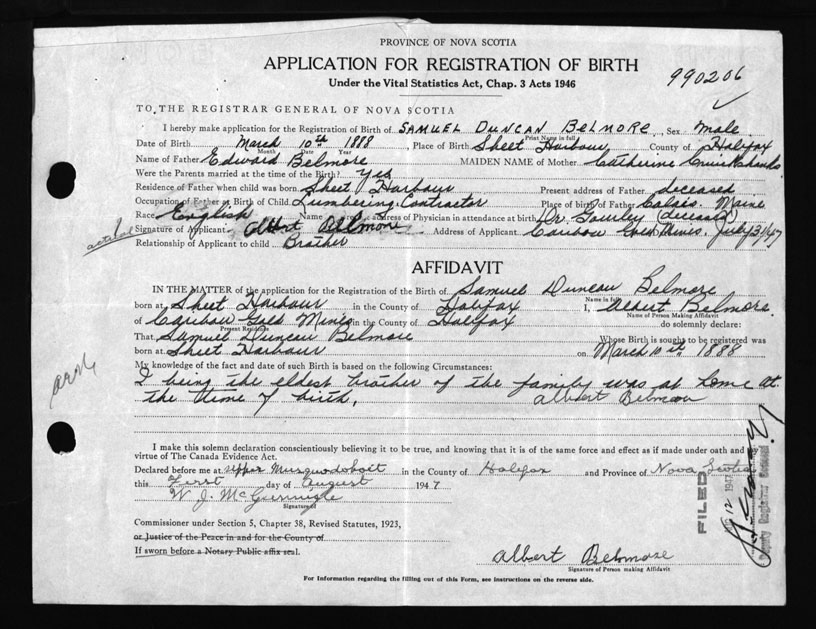 PROVINCE OF NOVA SCOTIA
APPLICATION FOR REGISTRATION OF BIRTH
990206
Under the Vital Statistics Act, Chap. 3 Acts 1946
TO THE REGISTRAR GENERAL OF NOVA SCOTIA
I hereby make application for the Registration of Birth of SAMUEL DUNCAN BELMORE, Sex Male
Print Name in full
Date of Birth March 10th 1888, Place of Birth Sheet Harbour County of Halifax
Month Date Year
Name of Father Edward Belmore MAIDEN NAME of Mother Catherine
Were the Parents married at the time of the Birth? Yes
Residence of Father when child was born Sheet Harbour Present address of Father deceased
Occupation of Father at Birth of Child Lumbering Contractor Place of birth of Father Calais, Maine
Race English Name & address of Physician in attendance at birth Dr. (deceased)
actual Signature of Applicant Albert Belmore Address of Applicant Caribou Gold Mines. July 31/47
Relationship of Applicant to child Brother
AFFIDAVIT
IN THE MATTER of the application for the Registration of the Birth of Samuel Duncan Belmore
Name in full
born at Sheet Harbour in the County of Halifax I, Albert Belmore
Name of Person Making Affidavit
of Caribou Gold Mines in the County of Halifax do solemnly declare:
Present Residence
That Samuel Duncan Belmore Whose Birth is sought to be registered was
born at Sheet Harbour on March 10th 1888
My knowledge of the fact and date of such Birth is based on the following Circumstances:
I being the eldest brother of the family was at home at
the time of birth. Albert Belmore
I make this solemn declaration conscientiously believing it to be true, and knowing that it is of the same force and effect as if made under oath and by
virtue of The Canada Evidence Act.
Declared before me at Upper Musquodoboit in the County of Halifax and Province of Nova Scotia
this First day of August 1947
W. J. McGunnigle
Signature of
Commissioner under Section 5, Chapter 38, Revised Statutes, 1923,
or Justice of the Peace in and for the County of
If sworn before a Notary Public affix seal.
Albert Belmore
Signature of Person making Affidavit
For Information regarding the filling out of this Form, see instructions on the reverse side.
FILED
12 1947
Deputy Registrar General